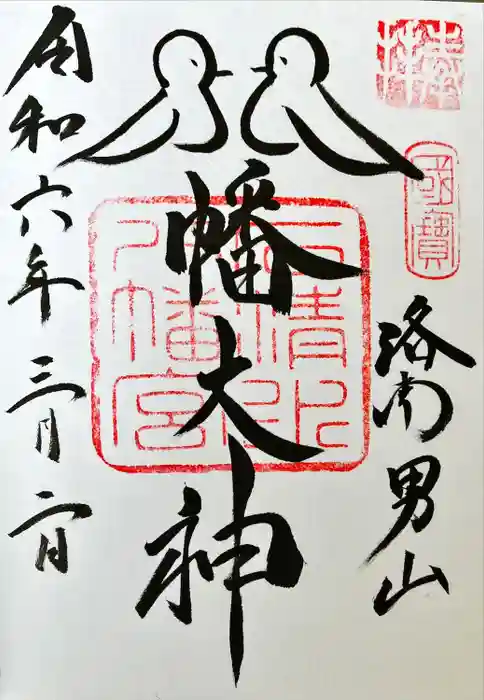 國寶
洛南男山
八幡大神
石清水
八幡宮
令和六年三月二日